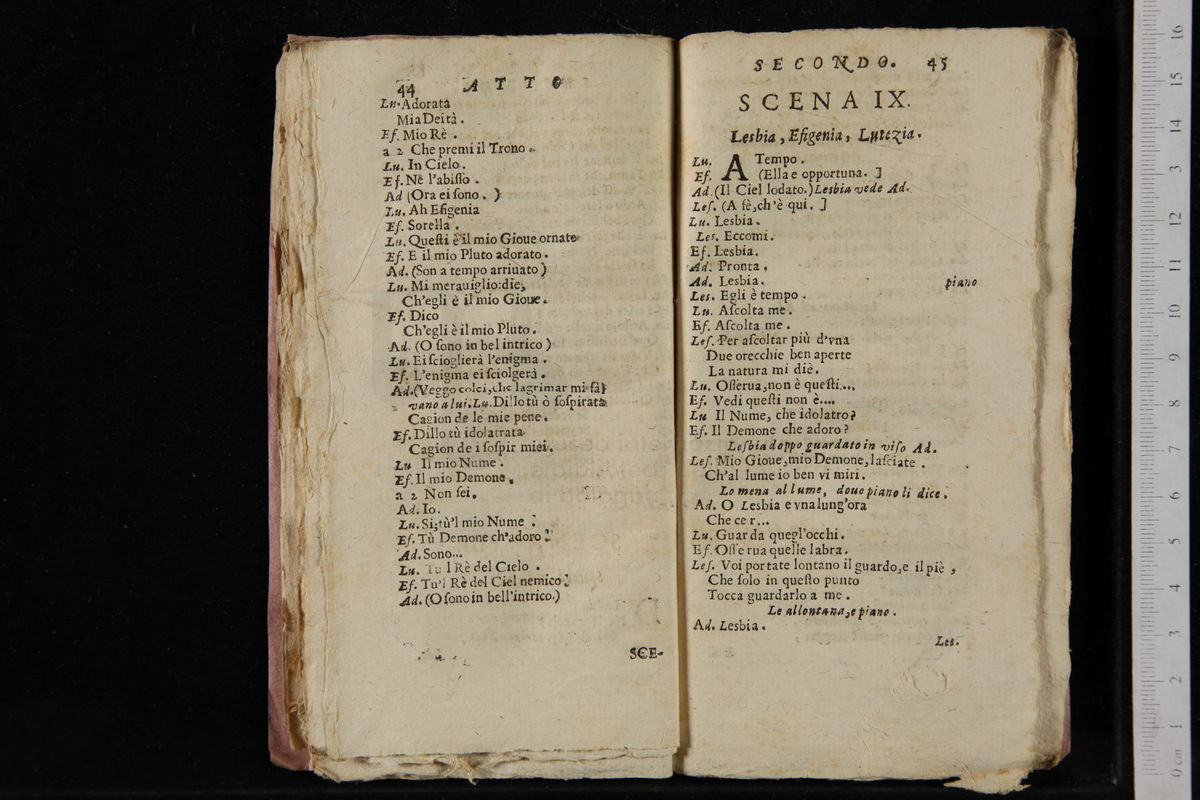 44 ATTO
Lu. Adorata
Mia Deità.
Ef. Mio Rè.
a 2 Che premi il Trono.
Lu. In Cielo.
Ef. Nè l'abiſſo.
Ad (Ora ei ſono. )
Lu. Ah Efigenia
Ef. Sorella.
Lu. Queſti è il mio Gioue ornato
Ef. E il mio Pluto adorato.
Ad. (Son a tempo arriuato)
Lu. Mi merauiglio: die,
Ch'egli è il mio Gioue.
Ef. Dico
Ch'egli è il mio Pluto.
Ad. (O ſono in bel intrico)
Lu. Ei ſcioglierà l'enigma.
Ef. L'enigma ei ſciolgerà.
Ad. (Veggo colei, che lagrimar mi fà)
vano a lui. Lu. Dillo tù ò ſoſpirata
Cagion de le mie pene.
Ef. Dillo tù idolatrata
Cagion de i ſoſpir miei.
Lu Il mio Nume.
Ef. Il mio Demone.
a 2 Non ſei.
Ad. Io.
Lu. Si, tù'l mio Nume!
Ef. Tù Demone ch'adoro!
Ad. Sono...
Lu. Tu l Rè del Cielo.
Ef. Tu'l Rè del Ciel nemico!
Ad. (O ſono in bell'intrico.)
SCE-
SECONDO. 45
SCENA IX.
Lesbia, Efigenia, Lutezia.
Lu. A Tempo.
Ef. (Ella e opportuna. ]
Ad. (Il Ciel lodato.) Lesbia vede Ad.
Leſ. (A fè, ch'è qui. ]
Lu. Lesbia.
Les. Eccomi.
Ef. Lesbia.
Ad. Pronta.
Ad. Lesbia. piano
Les. Egli è tempo.
Lu. Aſcolta me.
Ef. Aſcolta me.
Leſ. Per aſcoltar più d'vna
Due orecchie ben aperte
La natura mi diè.
Lu. Oſſerua, non è queſti...
Ef. Vedi queſti non è....
Lu Il Nume, che idolatro?
Ef. Il Demone che adoro?
Lesbia doppo guardato in viſo Ad.
Leſ. Mio Gioue, mio Demone, laſciate.
Ch'al lume io ben vi miri.
Lo mena al lume, doue piano li dice.
Ad. O Lesbia e vna lung'ora
Che ce r...
Lu. Guarda quegl'occhi.
Ef. Oſſe rua quelle labra.
Leſ. Voi portate lontano il guardo, e il piè,
Che ſolo in queſto punto
Tocca guardarlo a me.
Le allontana, e piano.
Ad. Lesbia.
Les.